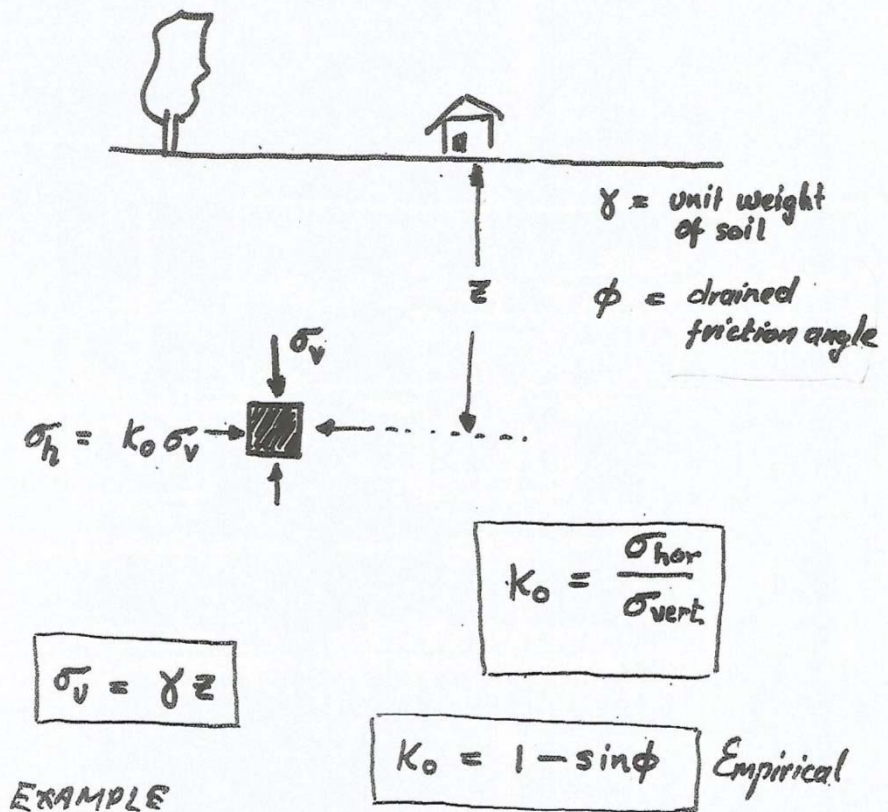 γ = unit weight
of soil
z
ϕ = drained
friction angle
σᵥ
σₕ = K₀ σᵥ
K₀ = σhor / σvert.
σᵥ = γ z
K₀ = 1 − sinϕ Empirical
EXAMPLE